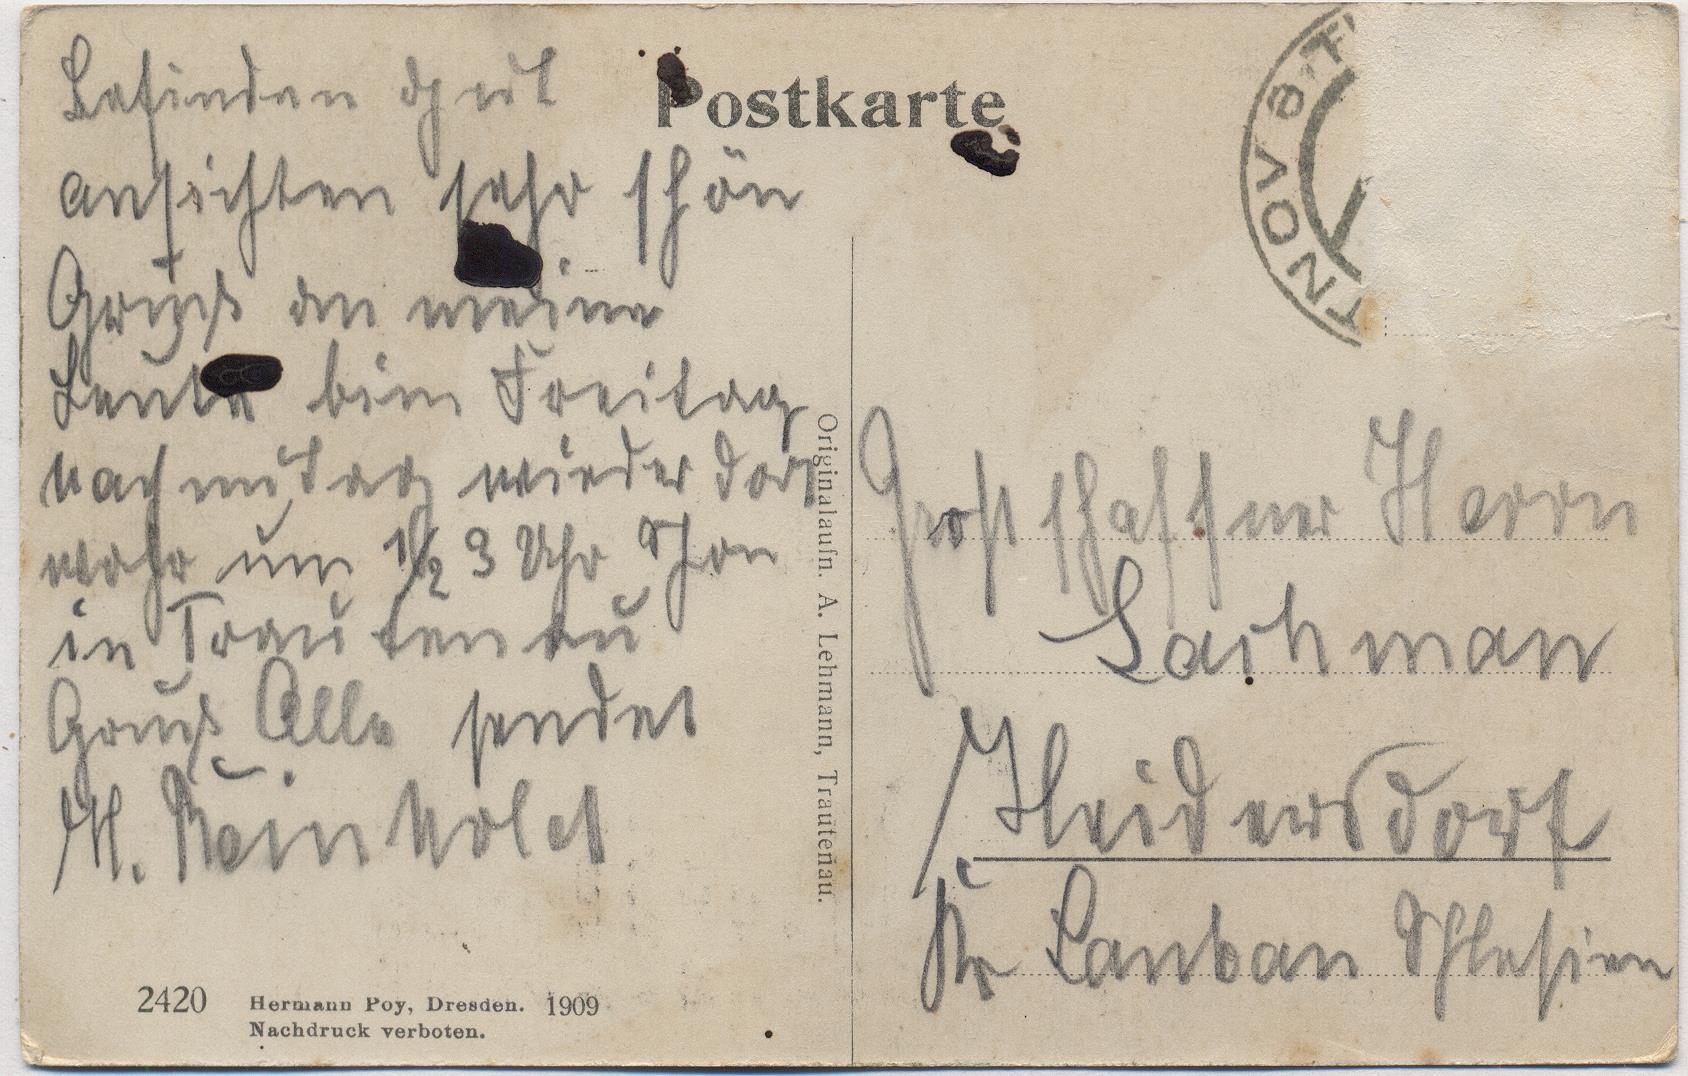 Postkarte
Befinden gut
ansichten sehr schön
Gruß an meine
Leute bim Freitag
nachmitag wieder dort
wahr um 1/2 3 Uhr Schon
in Trautenau
Gruß Alle sendet
H. Reinhold
2420 Hermann Poy, Dresden. 1909
Nachdruck verboten.
Originalaufn. A. Lehmann, Trautenau.
TNOV
Großschaffner Herrn
Lachman
Heidersdorf
Kr Lauban Schlesien